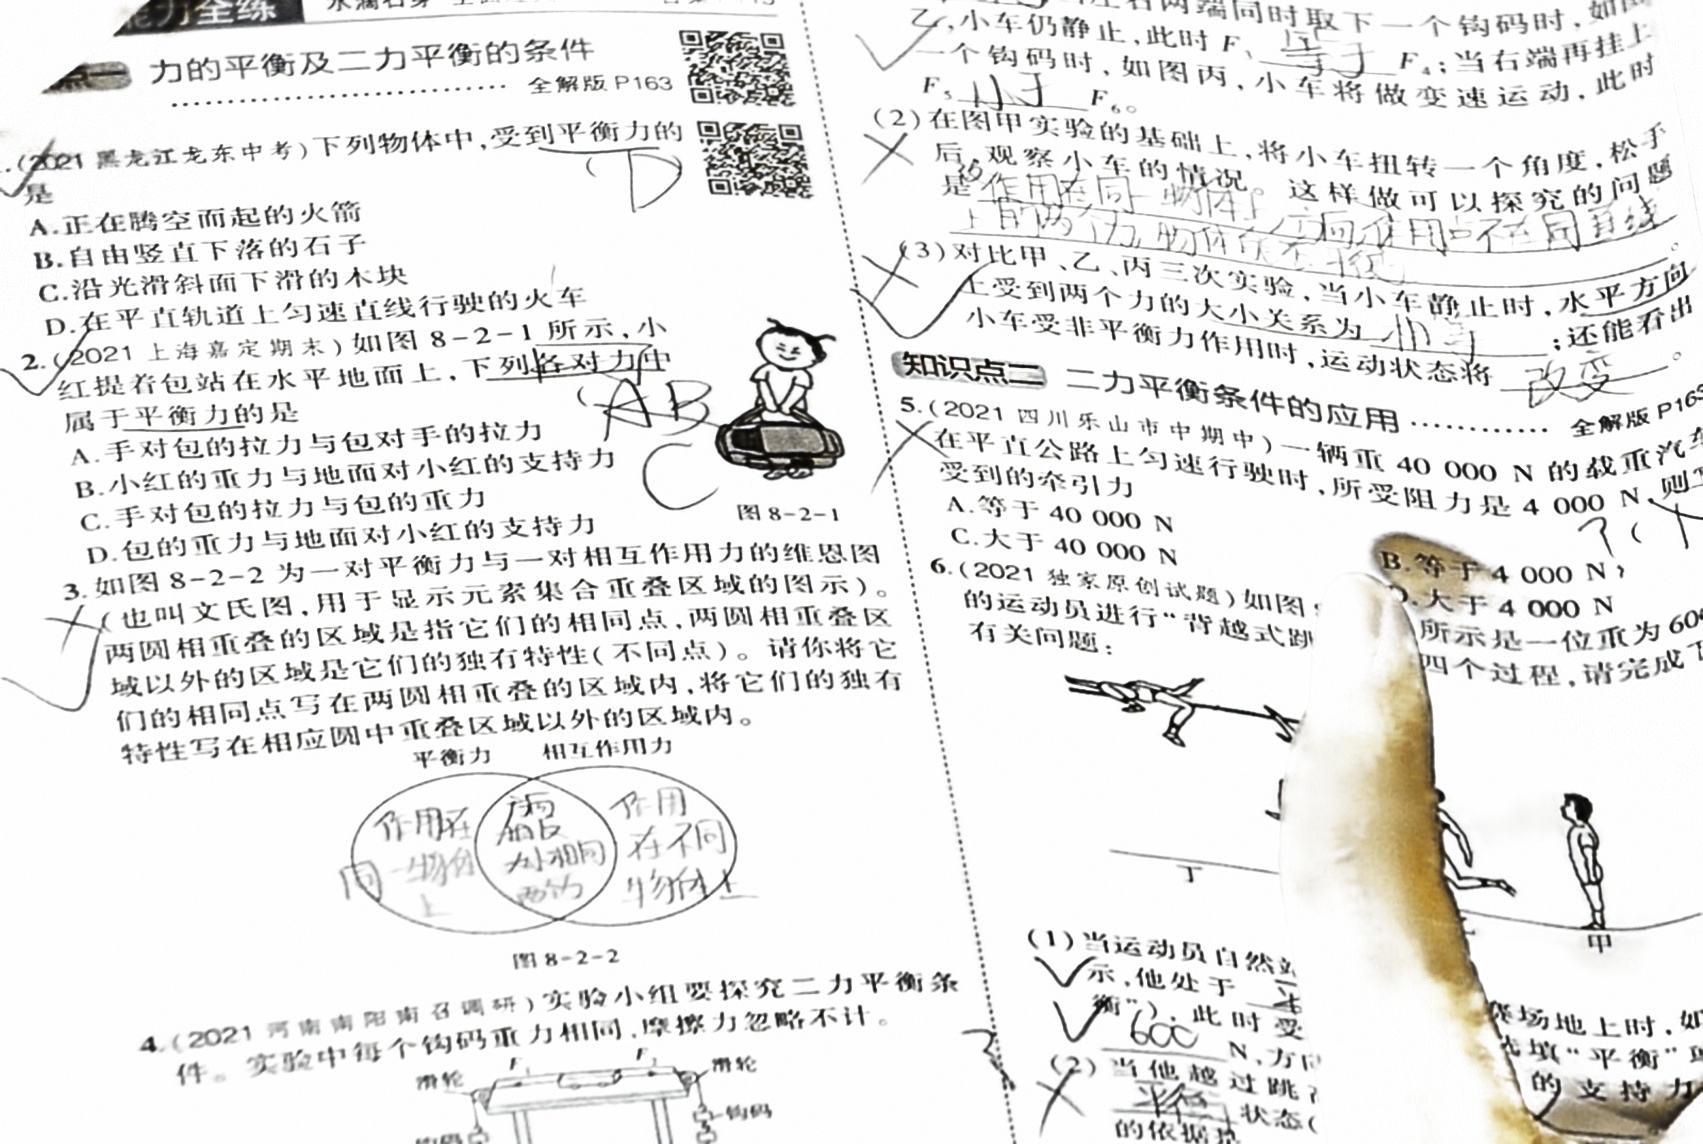 能力全练
力的平衡及二力平衡的条件
全解版 P163
(2021 黑龙江龙东中考)下列物体中,受到平衡力的
是
(D)
A.正在腾空而起的火箭
B.自由竖直下落的石子
C.沿光滑斜面下滑的木块
D.在平直轨道上匀速直线行驶的火车
2.(2021 上海嘉定期末)如图 8-2-1 所示,小
红提着包站在水平地面上,下列各对力中
属于平衡力的是
AB
C
A.手对包的拉力与包对手的拉力
B.小红的重力与地面对小红的支持力
C.手对包的拉力与包的重力
D.包的重力与地面对小红的支持力
图 8-2-1
3.如图 8-2-2 为一对平衡力与一对相互作用力的维恩图
(也叫文氏图,用于显示元素集合重叠区域的图示)。
两圆相重叠的区域是指它们的相同点,两圆相重叠区
域以外的区域是它们的独有特性(不同点)。请你将它
们的相同点写在两圆相重叠的区域内,将它们的独有
特性写在相应圆中重叠区域以外的区域内。
平衡力 相互作用力
作用在
同一物体
上
相反
大小相同
作用
在不同
物体上
图 8-2-2
4.(2021 河南南阳南召调研)实验小组要探究二力平衡条
件。实验中每个钩码重力相同,摩擦力忽略不计。
滑轮 F F 滑轮
钩码 钩码
左右两端同时取下一个钩码时,如图
乙,小车仍静止,此时 F₃ 等于 F₄;当右端再挂上
一个钩码时,如图丙,小车将做变速运动,此时
F₅ 小于 F₆。
(2)在图甲实验的基础上,将小车扭转一个角度,松手
后,观察小车的情况。这样做可以探究的问题
是 作用在同一物体上
上的两个力 物体 不在同直线
。
(3)对比甲、乙、丙三次实验,当小车静止时,水平方向
上受到两个力的大小关系为 ;还能看出
小车受非平衡力作用时,运动状态将 改变 。
知识点二 二力平衡条件的应用
全解版 P163
5.(2021 四川乐山市中期中)一辆重 40 000 N 的载重汽车
在平直公路上匀速行驶时,所受阻力是 4 000 N,则
受到的牵引力
(
A.等于 40 000 N
B.等于 4 000 N
C.大于 40 000 N
D.大于 4 000 N
6.(2021 独家原创试题)如图
所示是一位重为 600
的运动员进行“背越式跳
四个过程,请完成下
有关问题:
丁
甲
(1)当运动员自然站
场地上时,如
示,他处于
填“平衡”
衡”),此时受
的支持力
600 N,方向
(2)当他越过跳
平衡 状态(
的依据是